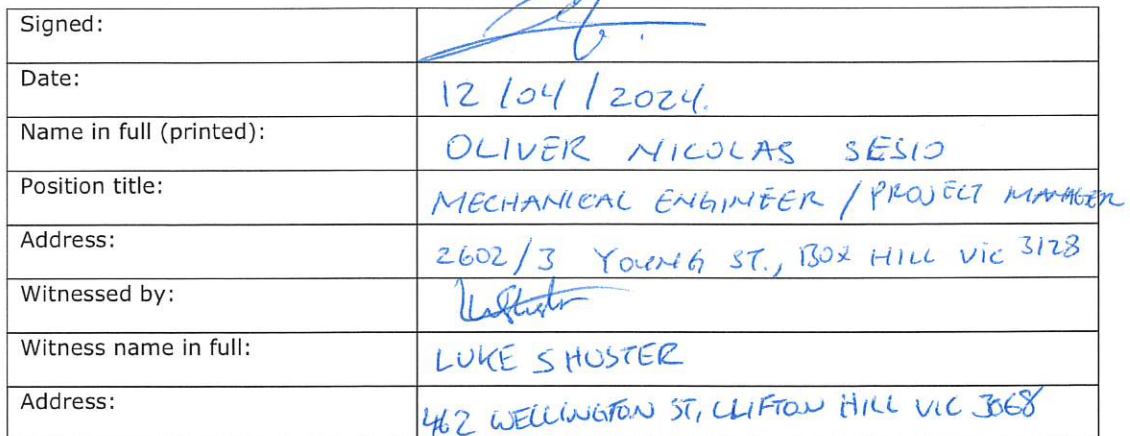 Signed:
Date: 12/04/2024.
Name in full (printed): OLIVER NICOLAS SESIO
Position title: MECHANICAL ENGINEER / PROJECT MANAGER
Address: 2602/3 YOUNG ST., BOX HILL VIC 3128
Witnessed by:
Witness name in full: LUKE SHUSTER
Address: 462 WELLINGTON ST, CLIFTON HILL VIC 3068